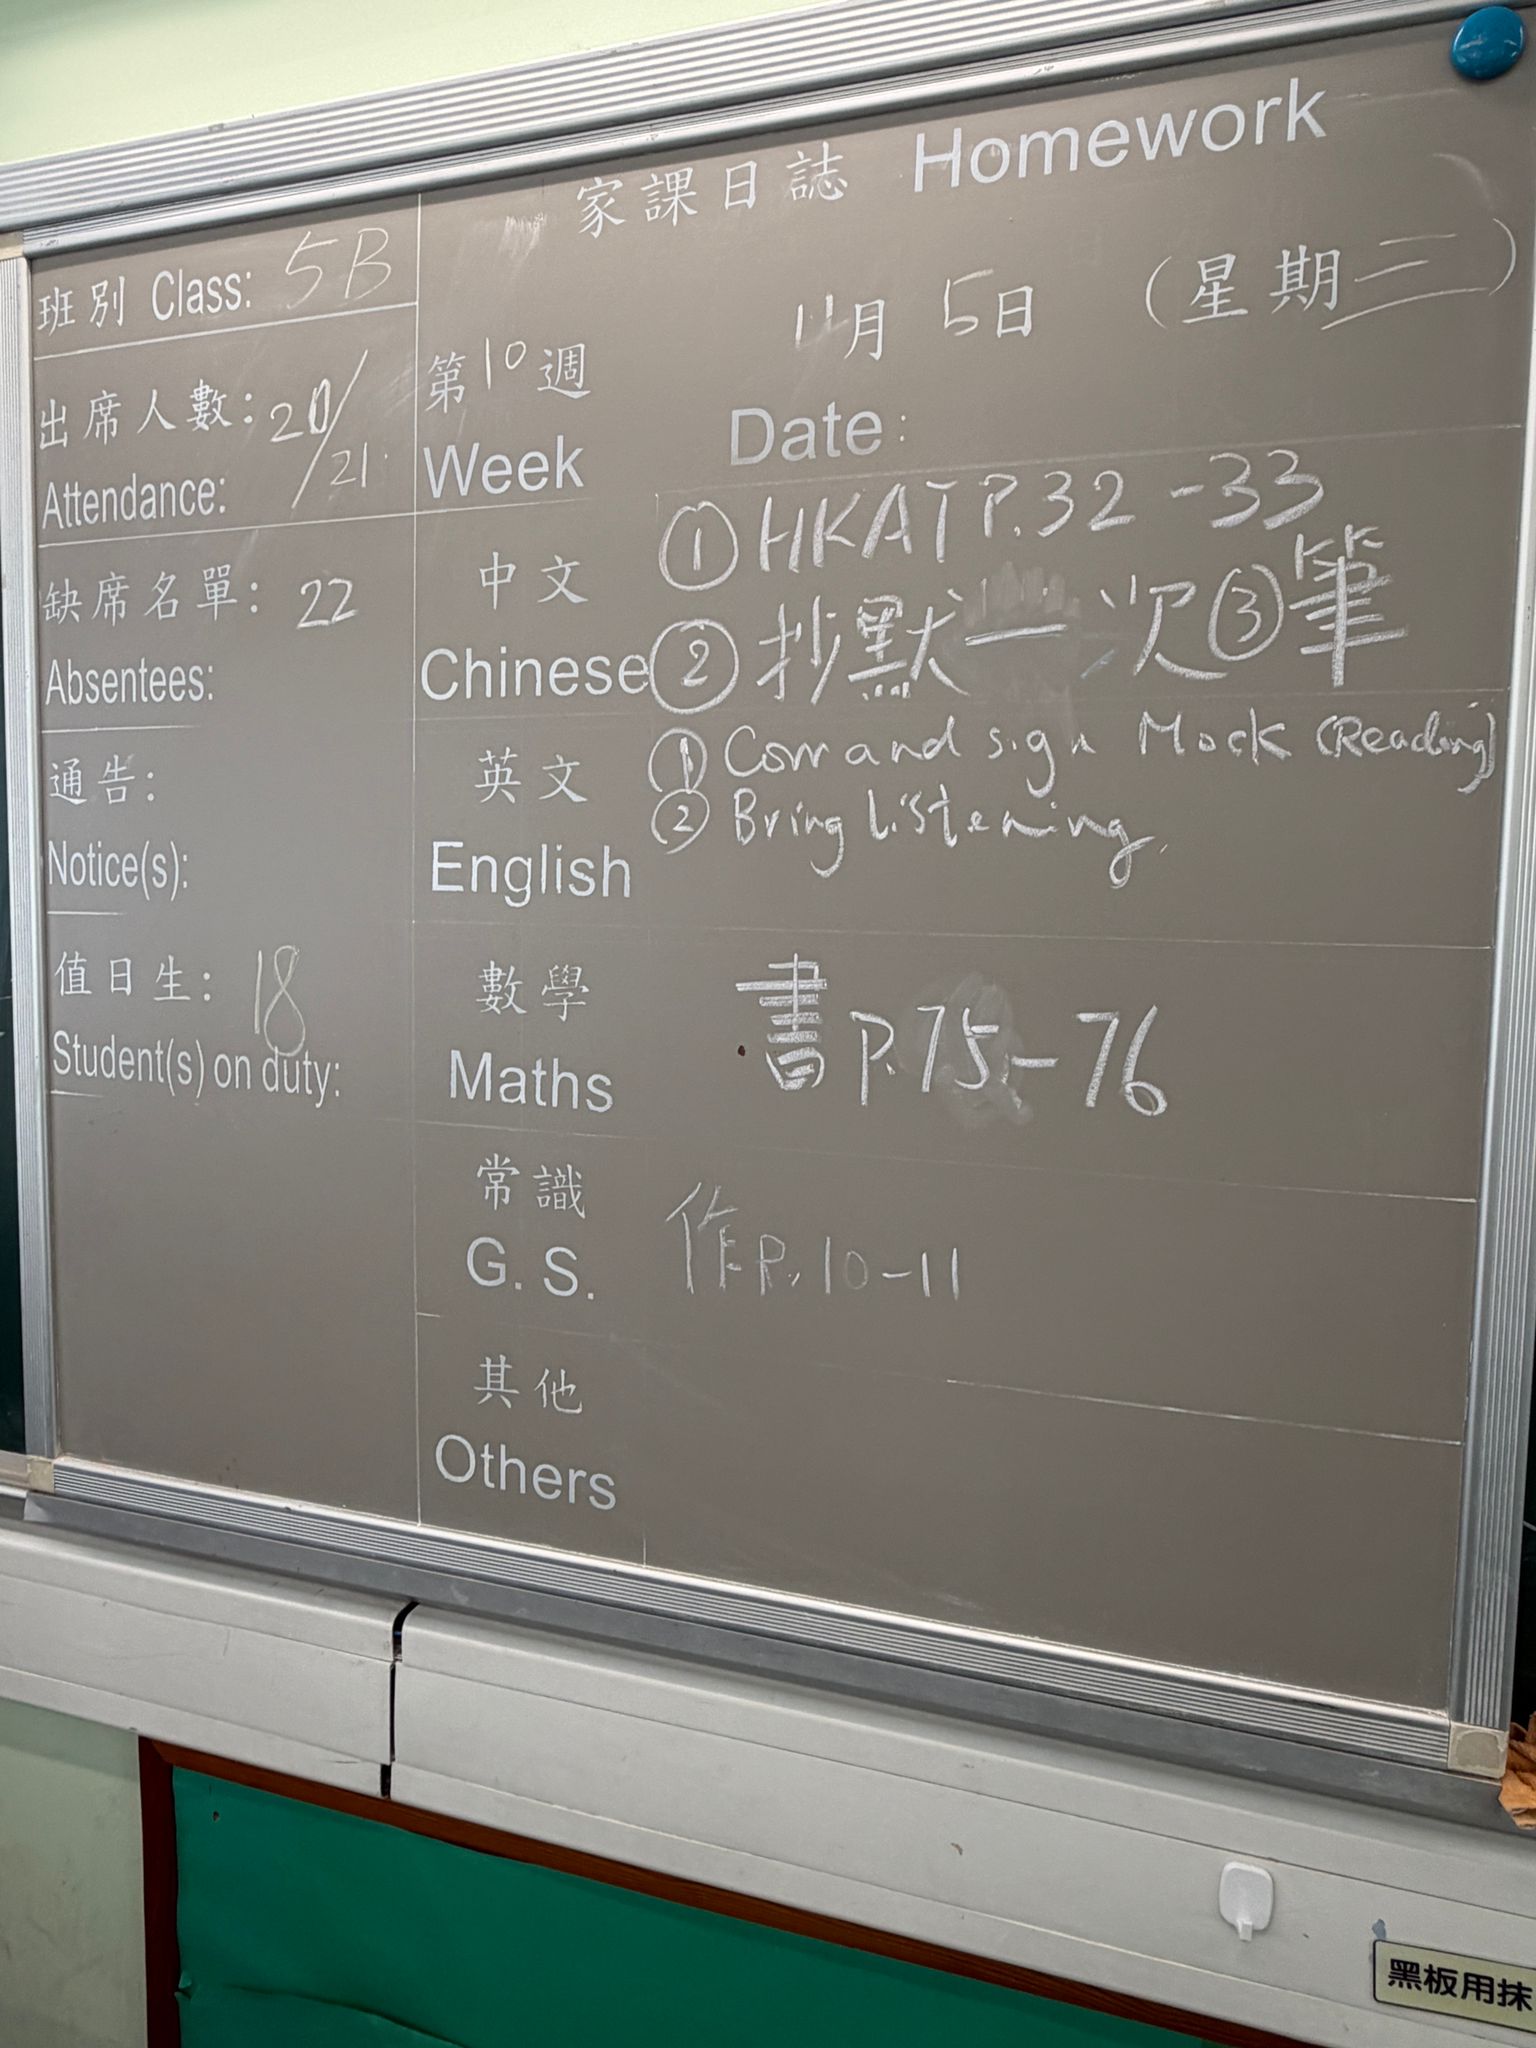 家課日誌 Homework
班別 Class: 5B
出席人數: 20/21
Attendance:
缺席名單: 22
Absentees:
通告:
Notice(s):
值日生: 18
Student(s) on duty:
第10週
Week
11月 5日 (星期三)
Date:
中文
Chinese
① HKAT P.32-33
② 抄默一次 ③ 筆
英文
English
① Corr and sign Mock (Reading)
② Bring Listening.
數學
Maths
書 P.75-76
常識
G. S.
作 P.10-11
其他
Others
黑板用抹